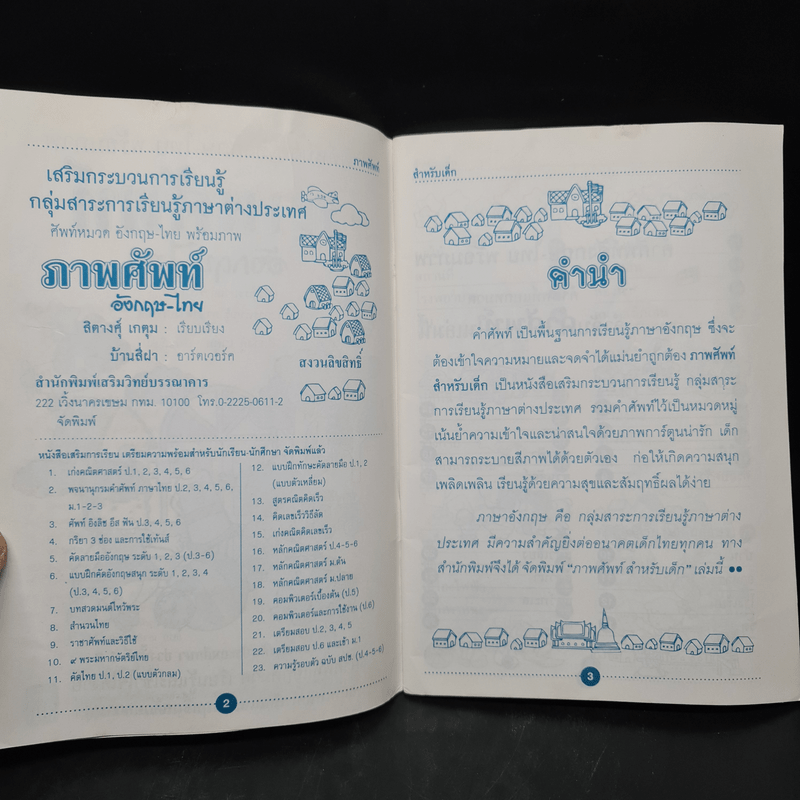 ภาพศัพท์
เสริมกระบวนการเรียนรู้
กลุ่มสาระการเรียนรู้ภาษาต่างประเทศ
ศัพท์หมวด อังกฤษ-ไทย พร้อมภาพ
ภาพศัพท์
อังกฤษ-ไทย
สิตางศุ์ เกตุม : เรียบเรียง
บ้านสี่ฝา : อาร์ตเวอร์ค
สงวนลิขสิทธิ์
สำนักพิมพ์เสริมวิทย์บรรณาคาร
222 เวิ้งนาครเขษม กทม. 10100 โทร.0-2225-0611-2
จัดพิมพ์
หนังสือเสริมการเรียน เตรียมความพร้อมสำหรับนักเรียน-นักศึกษา จัดพิมพ์แล้ว
1. เก่งคณิตศาสตร์ ป.1, 2, 3, 4, 5, 6
2. พจนานุกรมคำศัพท์ ภาษาไทย ป.2, 3, 4, 5, 6,
ม.1-2-3
3. ศัพท์ อิงลิช อีส ฟัน ป.3, 4, 5, 6
4. กริยา 3 ช่อง และการใช้เท้นส์
5. คัดลายมืออังกฤษ ระดับ 1, 2, 3 (ป.3-6)
6. แบบฝึกคัดอังกฤษสนุก ระดับ 1, 2, 3, 4
(ป.3, 4, 5, 6)
7. บทสวดมนต์ไหว้พระ
8. สำนวนไทย
9. ราชาศัพท์และวิธีใช้
10. ๙ พระมหากษัตริย์ไทย
11. คัดไทย ป.1, ป.2 (แบบตัวกลม)
12. แบบฝึกทักษะคัดลายมือ ป.1, 2
(แบบตัวเหลี่ยม)
13. สูตรคณิตคิดเร็ว
14. คิดเลขเร็ววิธีลัด
15. เก่งคณิตคิดเลขเร็ว
16. หลักคณิตศาสตร์ ป.4-5-6
17. หลักคณิตศาสตร์ ม.ต้น
18. หลักคณิตศาสตร์ ม.ปลาย
19. คอมพิวเตอร์เบื้องต้น (ป.5)
20. คอมพิวเตอร์และการใช้งาน (ป.6)
21. เตรียมสอบ ป.2, 3, 4, 5
22. เตรียมสอบ ป.6 และเข้า ม.1
23. ความรู้รอบตัว ฉบับ สปช. (ป.4-5-6)
2
สำหรับเด็ก
คำนำ
คำศัพท์ เป็นพื้นฐานการเรียนรู้ภาษาอังกฤษ ซึ่งจะ
ต้องเข้าใจความหมายและจดจำได้แม่นยำถูกต้อง ภาพศัพท์
สำหรับเด็ก เป็นหนังสือเสริมกระบวนการเรียนรู้ กลุ่มสาระ
การเรียนรู้ภาษาต่างประเทศ รวมคำศัพท์ไว้เป็นหมวดหมู่
เน้นย้ำความเข้าใจและน่าสนใจด้วยภาพการ์ตูนน่ารัก เด็ก
สามารถระบายสีภาพได้ด้วยตัวเอง ก่อให้เกิดความสนุก
เพลิดเพลิน เรียนรู้ด้วยความสุขและสัมฤทธิ์ผลได้ง่าย
ภาษาอังกฤษ คือ กลุ่มสาระการเรียนรู้ภาษาต่าง
ประเทศ มีความสำคัญยิ่งต่ออนาคตเด็กไทยทุกคน ทาง
สำนักพิมพ์จึงได้ จัดพิมพ์ "ภาพศัพท์ สำหรับเด็ก" เล่มนี้ ●●
3